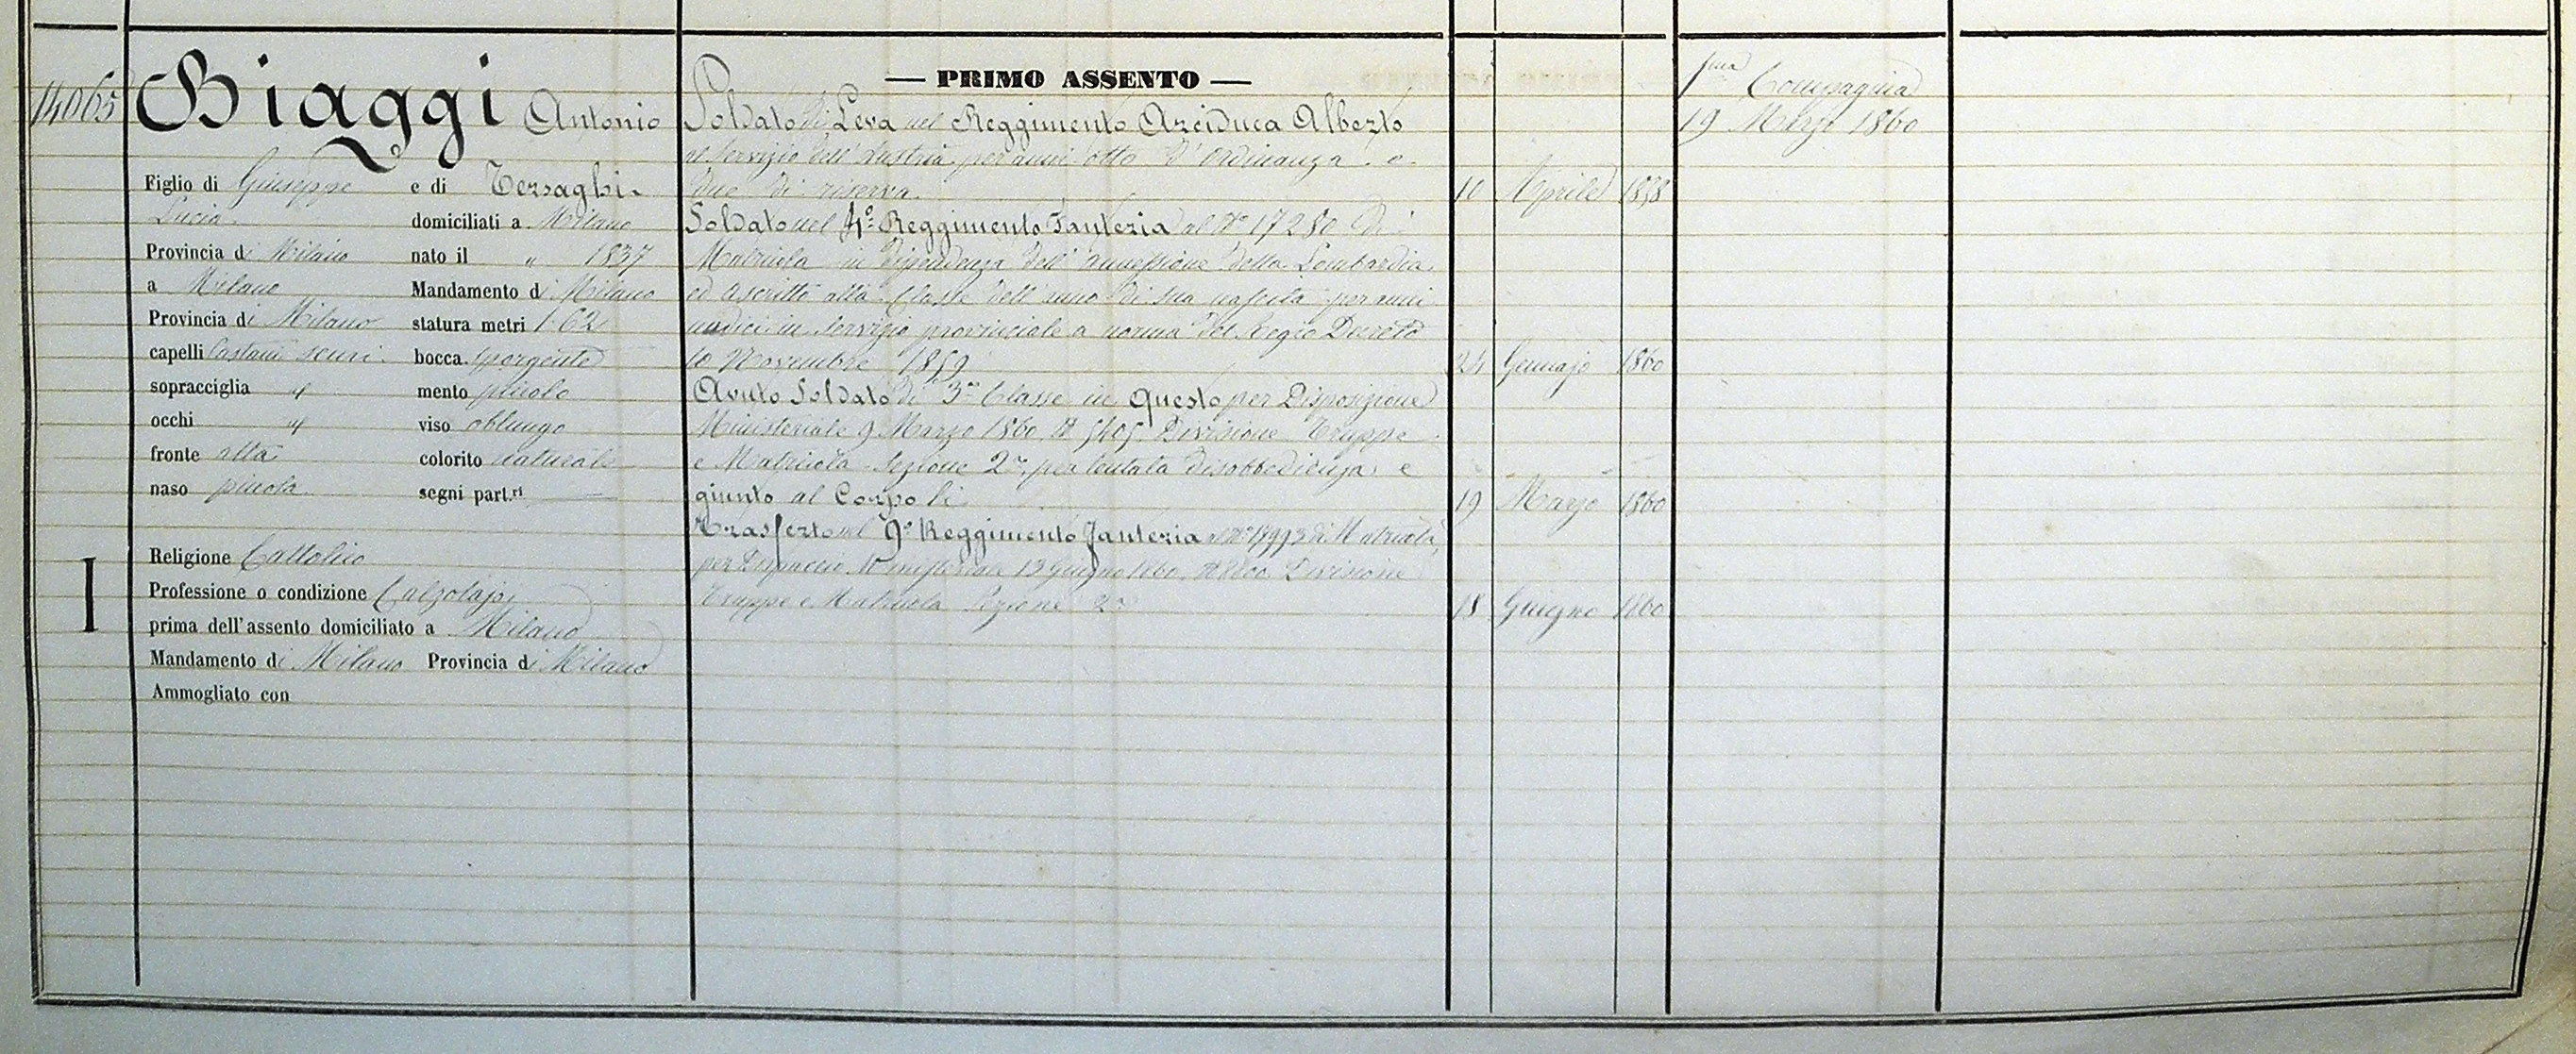 14065
Biaggi Antonio
Figlio di Giuseppe e di Terzaghi
Lucia domiciliati a Milano
Provincia di Milano nato il " 1837
a Milano Mandamento di Milano
Provincia di Milano statura metri 1.62
capelli Castani scuri bocca sporgente
sopracciglia " mento piccolo
occhi " viso oblungo
fronte alta colorito naturale
naso piccolo segni part.ri —
I
Religione Cattolico
Professione o condizione Calzolajo
prima dell'assento domiciliato a Milano
Mandamento di Milano Provincia di Milano
Ammogliato con
— PRIMO ASSENTO —
Soldato di Leva nel Reggimento Arciduca Alberto
al servizio dell'Austria per anni otto d'ordinanza e
due di riserva. 10 Aprile 1858
Soldato nel 4° Reggimento Fanteria al N° 17280 di
Matricola in dipendenza dell'annessione della Lombardia
ed ascritto alla Classe dell'anno di sua nascita per anni
undici in servizio provinciale a norma del Regio Decreto
10 Novembre 1859 24 Gennajo 1860
Avuto Soldato di 3a Classe in questo per Disposizione
Ministeriale 9 Marzo 1860 N 5405 Divisione Truppe
e Matricola Sezione 2a, per tentata disobbedienza e
giunto al Corpo li 19 Marzo 1860
Trasferto nel 9° Reggimento Fanteria al N° 17993 di Matricola,
per Dispaccio Ministeriale 13 Giugno 1860 N 8800 Divisione
Truppe e Matricola Sezione 2a 18 Giugno 1860
1ma Compagnia
19 Marzo 1860